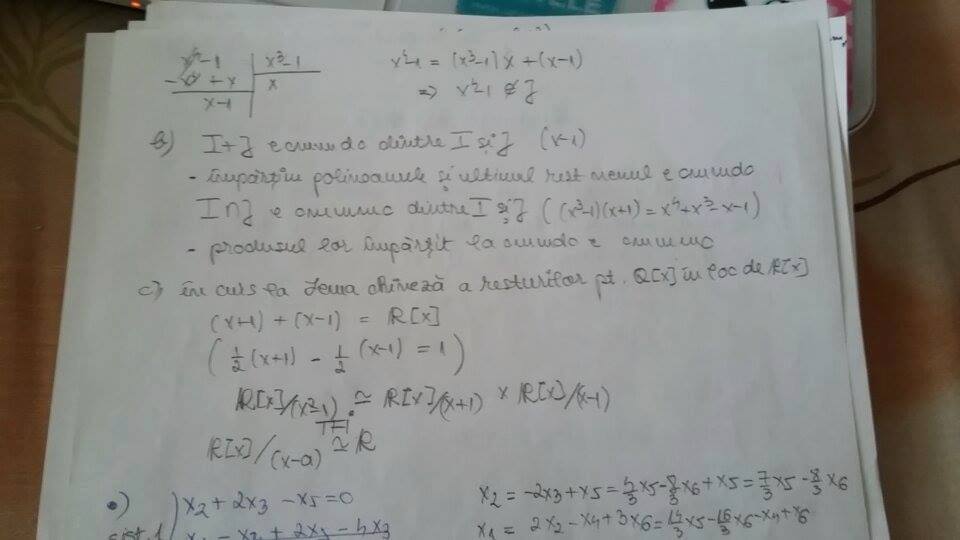 x⁴-1 | x³-1
-x⁴ + x | x
x-1
x⁴-1 = (x³-1)x + (x-1)
=> x⁴-1 ∉ J
b) I+J e cmmdc dintre I și J (x-1)
- împărțim polinoamele și ultimul rest nenul e cmmdc
I∩J e cmmmc dintre I și J ((x³-1)(x+1) = x⁴+x³-x-1)
- produsul lor împărțit la cmmdc e cmmmc
c) în curs la Lema chineză a resturilor pt. Q[x] în loc de R[x]
(x+1) + (x-1) = R[x]
(1/2 (x+1) - 1/2 (x-1) = 1)
R[x]/(x²-1) ≃ R[x]/(x+1) × R[x]/(x-1)
R[x]/(x-a) ≃ R
•) x₂ + 2x₃ - x₅ = 0
x₂ = -2x₃ + x₅ = 4/3 x₅ - 8/3 x₆ + x₅ = 7/3 x₅ - 8/3 x₆
x₁ = 2x₂ - x₄ + 3x₆ = 14/3 x₅ - 16/3 x₆ - x₄ + x₆